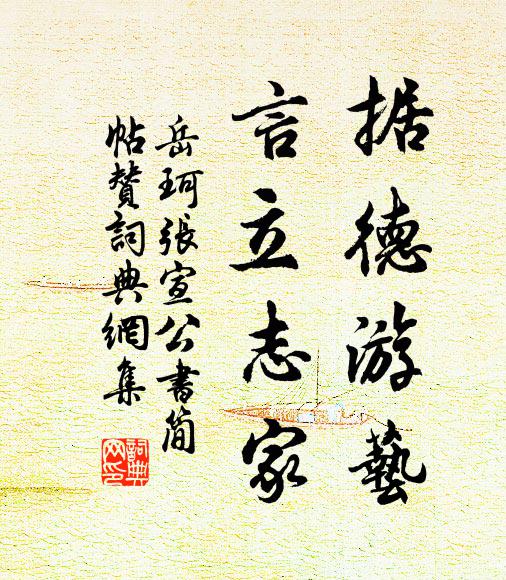 据德游藝
言立志家
岳珂張宣公書簡
帖贊詞典網集
詞典
网印